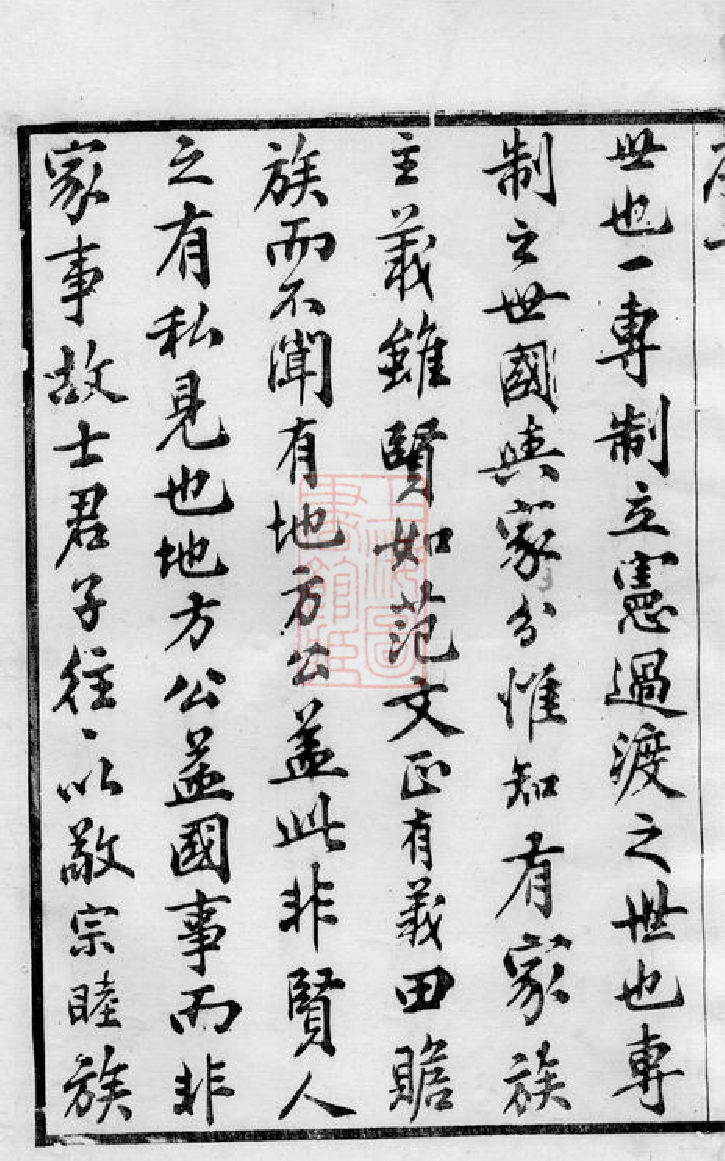 世也一專制立憲過渡之世也專
制之世國與家分惟知有家族
主義雖賢如范文正有義田贍
族而不聞有地方公益此非賢人
之有私見也地方公益國事而非
家事故士君子往〻以敬宗睦族
上海圖書館藏